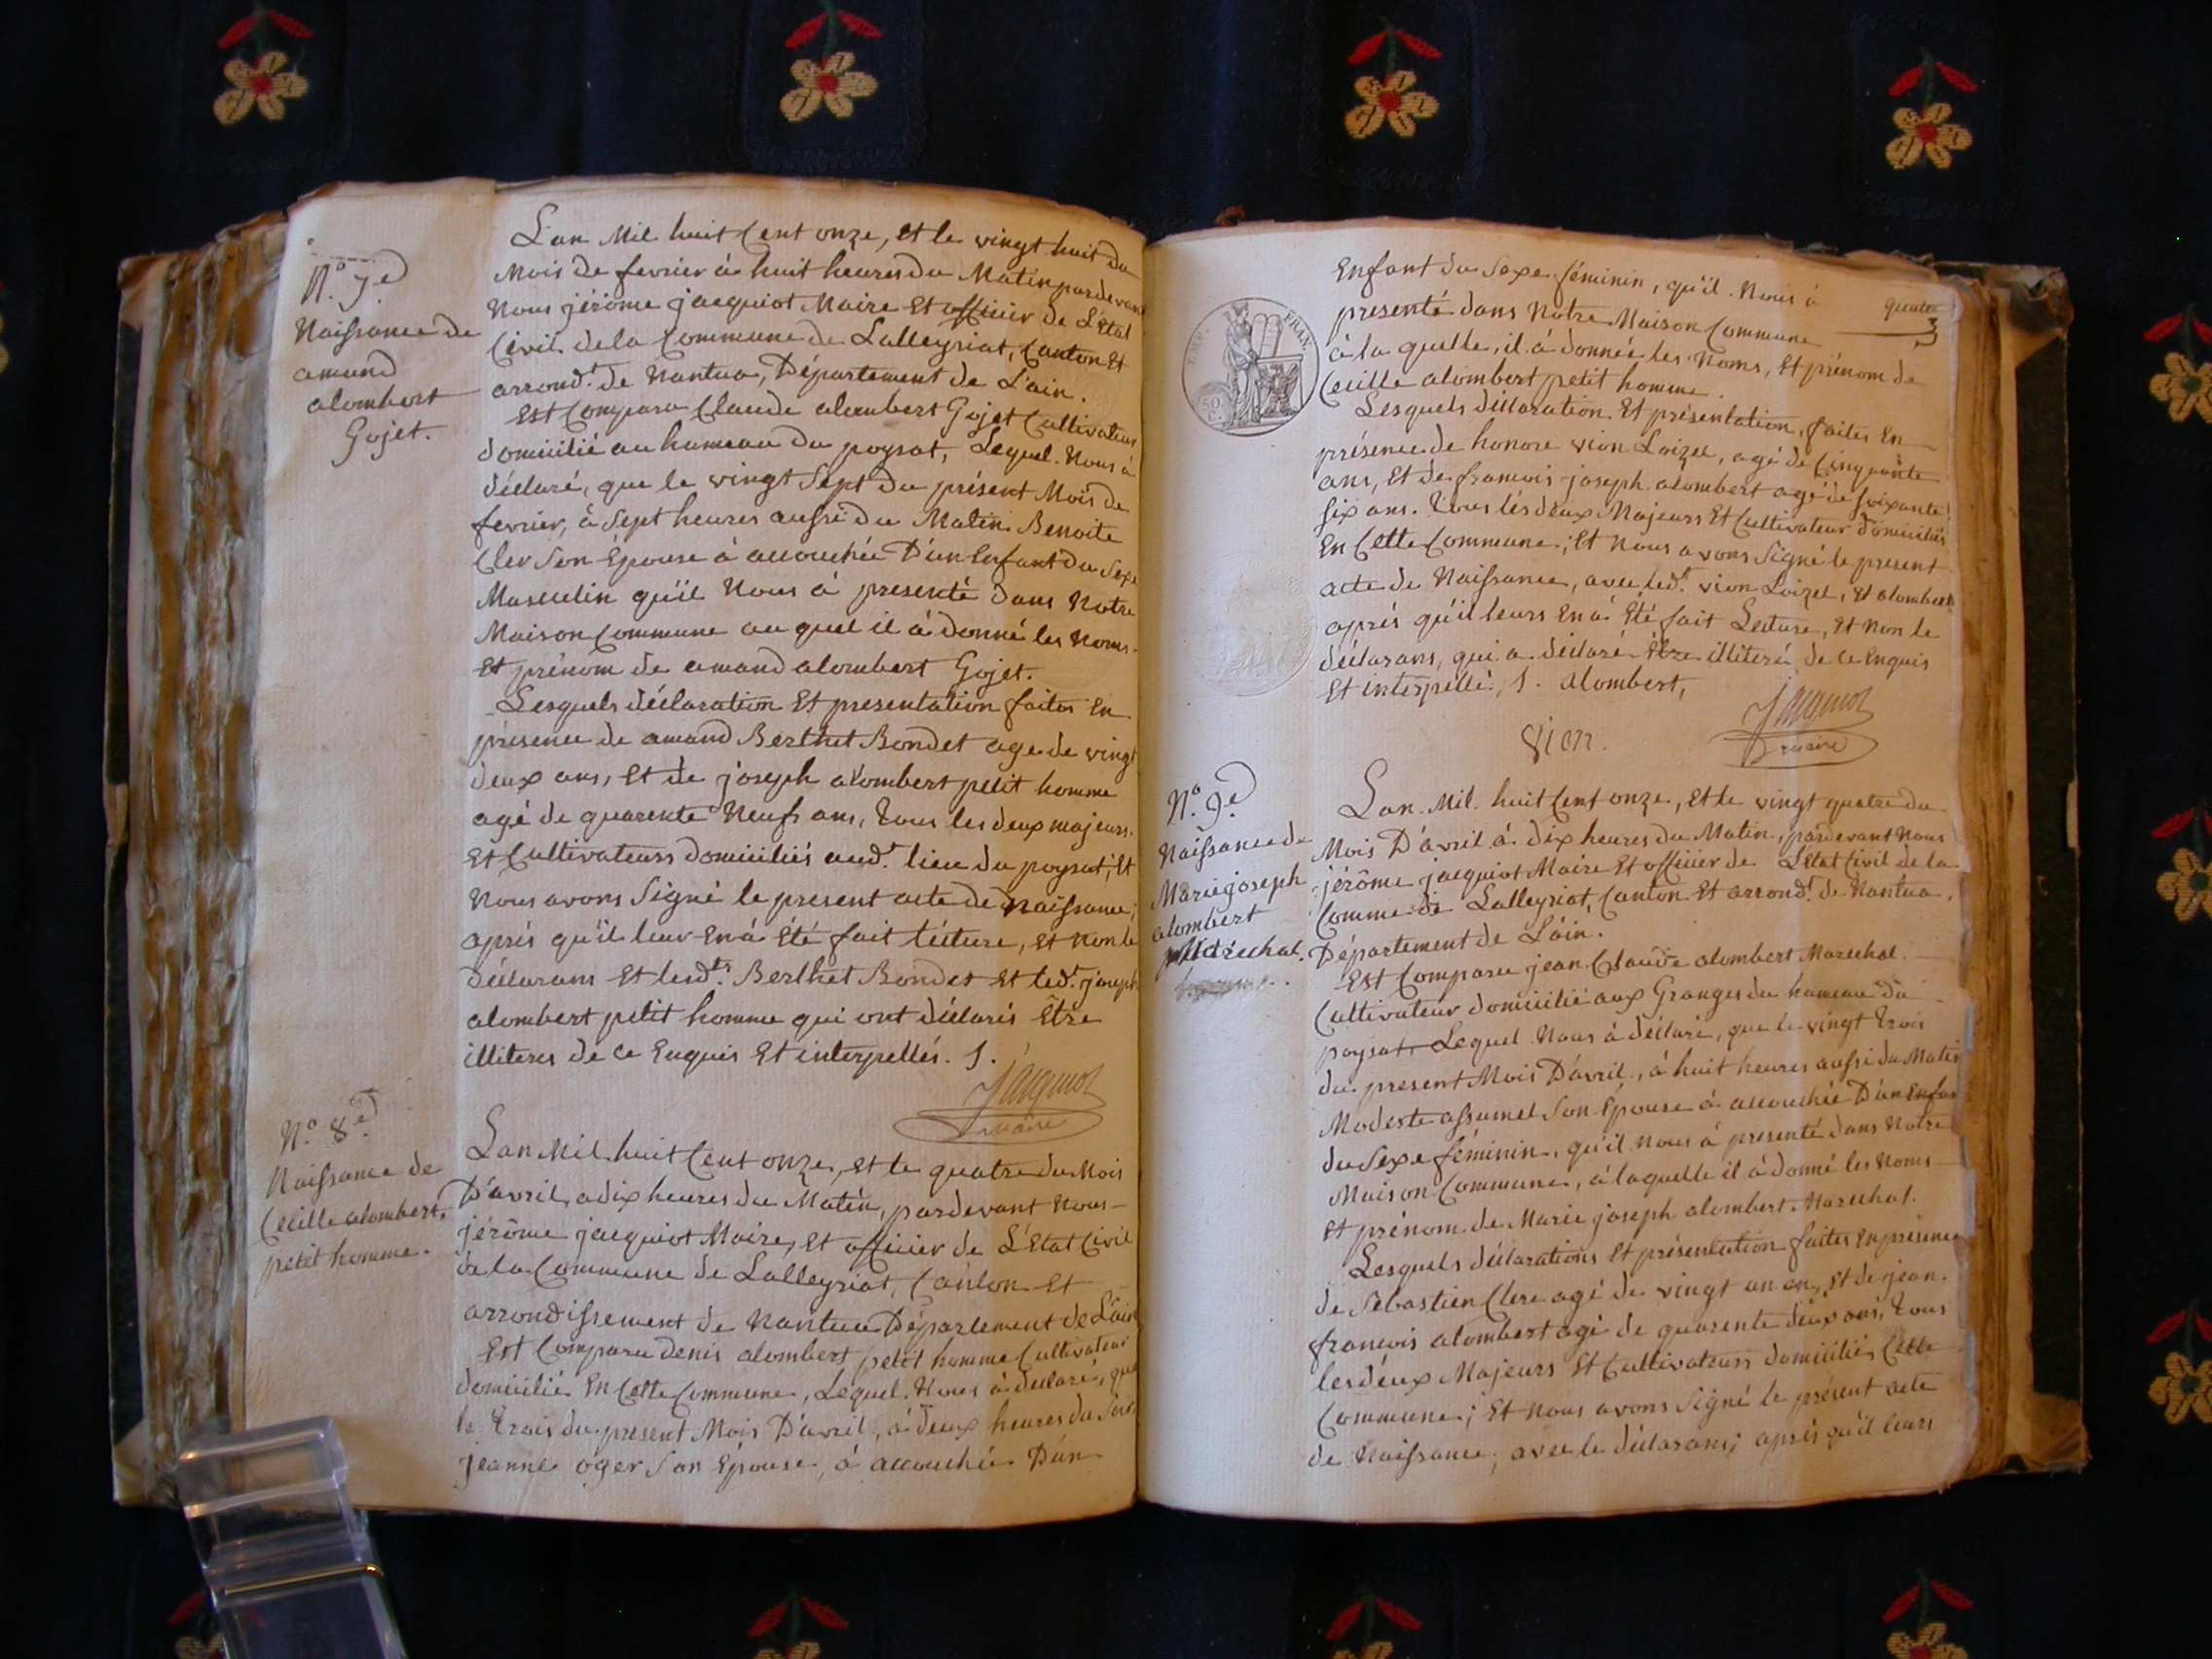 N.º 7.e
Naissance de
amand
alombert
Gojet.
Lan Mil huit Cent onze, et le vingt huit du
Mois de fevrier à huit heures du Matin pardevant
Nous jérôme jacquiot Maire Et officier de L'Etat
Civil de la Commune de Lalleyriat, Canton Et
arrond.t de Nantua, Département de L'ain.
Est Comparu Claude alombert Gojet Cultivateur
domicilié au hameau du poysat, Lequel Nous à
déclaré, que le vingt Sept du présent Mois de
fevrier, à Sept heures aussi du Matin Benoite
Cler Son Épouse à accouchée D'un Enfant du Sexe
Masculin qu'il Nous à presenté dans Notre
Maison Commune au quel il à donné les Noms
Et prénom de amand alombert Gojet.
Lesquels déclaration Et presentation faites En
présence de amand Berthet Bondet age de vingt
deux ans, Et de joseph alombert petit homme
agé de quarente Neufs ans, tous les deux majeurs
Et Cultivateurs domiciliés aud.t lieu du poysat; Et
Nous avons Signé le present acte de Naissance;
aprés qu'il leur En à Été fait lécture, et Non le
déclarans Et lesd.ts Berthet Bondet Et led.t joseph
alombert petit homme qui ont déclarés Être
illiteres de ce Enquis Et interpellés. S.
Jacquiot
maire
N.º 8.e
Naissance de
Cecille alombert
petit homme.
Lan Mil huit Cent onze, et le quatre du Mois
D'avril, a dix heures du Matin, pardevant Nous
jérôme jacquiot Maire, Et officier de L'Etat Civil
de la Commune de Lalleyriat, Canton Et
arrondissement de Nantua Département de L'ain
Est Comparu denis alombert petit homme Cultivateur
domicilié En Cette Commune, Lequel Nous à declaré, que
le trois du present Mois D'avril, à deux heures du Soir
jeanne oger Son Épouse, à accouchée D'un
quatre
3
EMP. FRAN.
50 C.
Enfant du Sexe féminin, qu'il Nous à
presenté dans Notre Maison Commune
à la quelle, il à donnée les Noms, Et prénom de
Cecille alombert petit homme.
Lesquels déclaration Et présentation, faites En
présence de honore vion Loizel, agé de Cinquante
ans, Et de francois joseph alombert agé de soixante
six ans. tous lés deux Majeurs Et Cultivateur domiciliés
En Cette Commune; Et Nous avons Signé le present
acte de Naissance, avec led.t vion Loizel, Et alombert
aprés qu'il leurs En à Été fait Lecture, Et Non le
déclarans, qui a déclaré Être illiteré de ce Enquis
Et interpellé, S. alombert,
Vion.
Jacquiot
maire
N.º 9.e
Naissance de
Marie joseph
alombert
Maréchal.
Lan Mil huit Cent onze, et le vingt quatre du
Mois D'avril à dix heures du Matin, pardevant Nous
jérôme jacquiot Maire Et officier de L'Etat Civil de la
Comme de Lalleyriat, Canton Et arrond.t de Nantua,
Département de L'ain.
Est Comparu jean Claude alombert Marechal
Cultivateur domicilié aux Granges du hameau du
poysat, Lequel Nous à déclaré, que le vingt trois
du present Mois D'avril, à huit heures aussi du Matin
Modeste assumel Son Epouse à accouchée D'un Enfan
du Sexe féminin, qu'il Nous à presenté dans Notre
Maison Commune, à laquelle il à donné les Noms
Et prénom de Marie joseph alombert Marechal.
Lesquels déclarations Et présentation faites En présence
de Sébastien Clerc agé de vingt un an, Et de jean
francois alombert agé de quarente deux ans, tous
les déux Majeurs Et Cultivateurs domiciliés Cette
Commune; Et Nous avons Signé le présent acte
de Naissance, avec le déclarans; aprés qu'il leurs